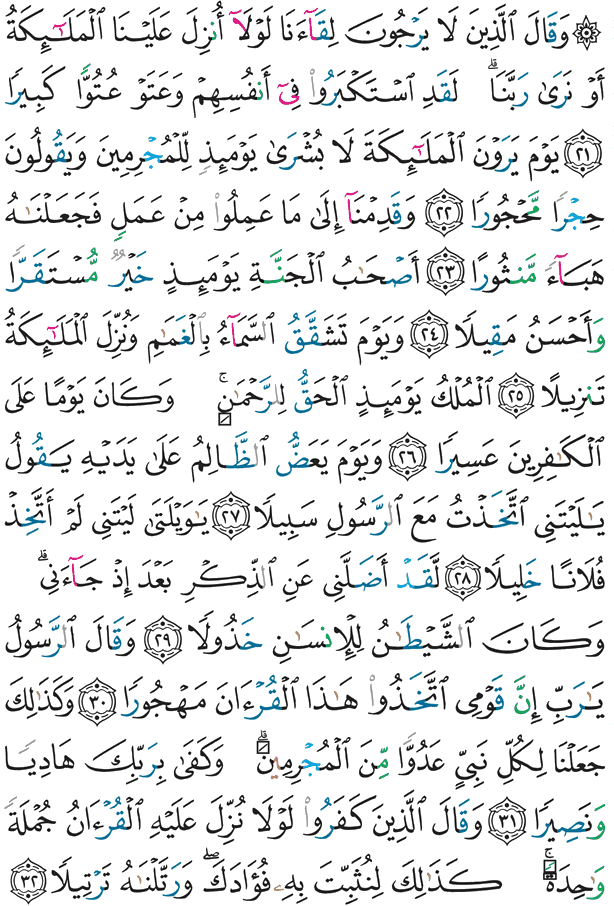 ۞ وَقَالَ ٱلَّذِينَ لَا يَرْجُونَ لِقَآءَنَا لَوْلَآ أُنزِلَ عَلَيْنَا ٱلْمَلَـٰٓئِكَةُ
أَوْ نَرَىٰ رَبَّنَا ۗ لَقَدِ ٱسْتَكْبَرُوا۟ فِىٓ أَنفُسِهِمْ وَعَتَوْ عُتُوًّا كَبِيرًا
﴿٢١﴾ يَوْمَ يَرَوْنَ ٱلْمَلَـٰٓئِكَةَ لَا بُشْرَىٰ يَوْمَئِذٍ لِّلْمُجْرِمِينَ وَيَقُولُونَ
حِجْرًا مَّحْجُورًا ﴿٢٢﴾ وَقَدِمْنَآ إِلَىٰ مَا عَمِلُوا۟ مِنْ عَمَلٍ فَجَعَلْنَـٰهُ
هَبَآءً مَّنثُورًا ﴿٢٣﴾ أَصْحَـٰبُ ٱلْجَنَّةِ يَوْمَئِذٍ خَيْرٌ مُّسْتَقَرًّا
وَأَحْسَنُ مَقِيلًا ﴿٢٤﴾ وَيَوْمَ تَشَقَّقُ ٱلسَّمَآءُ بِٱلْغَمَـٰمِ وَنُزِّلَ ٱلْمَلَـٰٓئِكَةُ
تَنزِيلًا ﴿٢٥﴾ ٱلْمُلْكُ يَوْمَئِذٍ ٱلْحَقُّ لِلرَّحْمَـٰنِ ۚ وَكَانَ يَوْمًا عَلَى
ٱلْكَـٰفِرِينَ عَسِيرًا ﴿٢٦﴾ وَيَوْمَ يَعَضُّ ٱلظَّالِمُ عَلَىٰ يَدَيْهِ يَقُولُ
يَـٰلَيْتَنِى ٱتَّخَذْتُ مَعَ ٱلرَّسُولِ سَبِيلًا ﴿٢٧﴾ يَـٰوَيْلَتَىٰ لَيْتَنِى لَمْ أَتَّخِذْ
فُلَانًا خَلِيلًا ﴿٢٨﴾ لَّقَدْ أَضَلَّنِى عَنِ ٱلذِّكْرِ بَعْدَ إِذْ جَآءَنِى ۗ
وَكَانَ ٱلشَّيْطَـٰنُ لِلْإِنسَـٰنِ خَذُولًا ﴿٢٩﴾ وَقَالَ ٱلرَّسُولُ
يَـٰرَبِّ إِنَّ قَوْمِى ٱتَّخَذُوا۟ هَـٰذَا ٱلْقُرْءَانَ مَهْجُورًا ﴿٣٠﴾ وَكَذَٰلِكَ
جَعَلْنَا لِكُلِّ نَبِىٍّ عَدُوًّا مِّنَ ٱلْمُجْرِمِينَ ۗ وَكَفَىٰ بِرَبِّكَ هَادِيًا
وَنَصِيرًا ﴿٣١﴾ وَقَالَ ٱلَّذِينَ كَفَرُوا۟ لَوْلَا نُزِّلَ عَلَيْهِ ٱلْقُرْءَانُ جُمْلَةً
وَٰحِدَةً ۚ كَذَٰلِكَ لِنُثَبِّتَ بِهِۦ فُؤَادَكَ ۖ وَرَتَّلْنَـٰهُ تَرْتِيلًا ﴿٣٢﴾